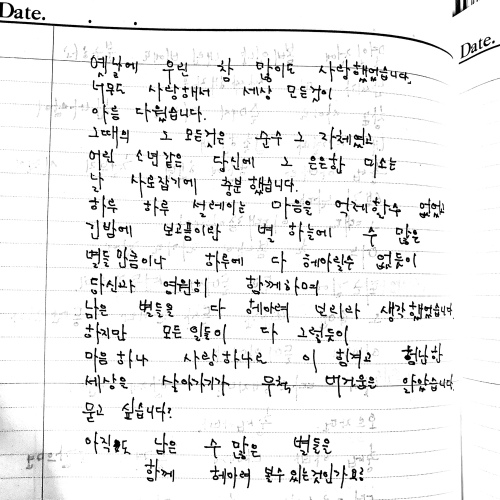 Date.
Date.
옛날에 우린 참 많이도 사랑했었습니다.
너무도 사랑해서 세상 모든것이
아름 다웠습니다.
그때의 그 모든것은 순수 그 자체였고
어린 소년같은 당신에 그 은은한 미소는
날 사로잡기에 충분했습니다.
하루 하루 설레이는 마음을 억제할수 없었고
긴밤에 보고픔이란 별 하늘에 수 많은
별들 만큼이나 하루에 다 헤아릴수 없듯이
당신과 영원히 함께하며
남은 별들을 다 헤아려 보리라 생각했었습니다
하지만 모든 일들이 다 그렇듯이
마음 하나 사랑하나로 이 힘겹고 험난한
세상은 살아가기가 무척 버거움을 알았습니다
묻고 싶습니다?
아직도 남은 수 많은 별들을
함께 헤아려 볼수 있는것인가요?